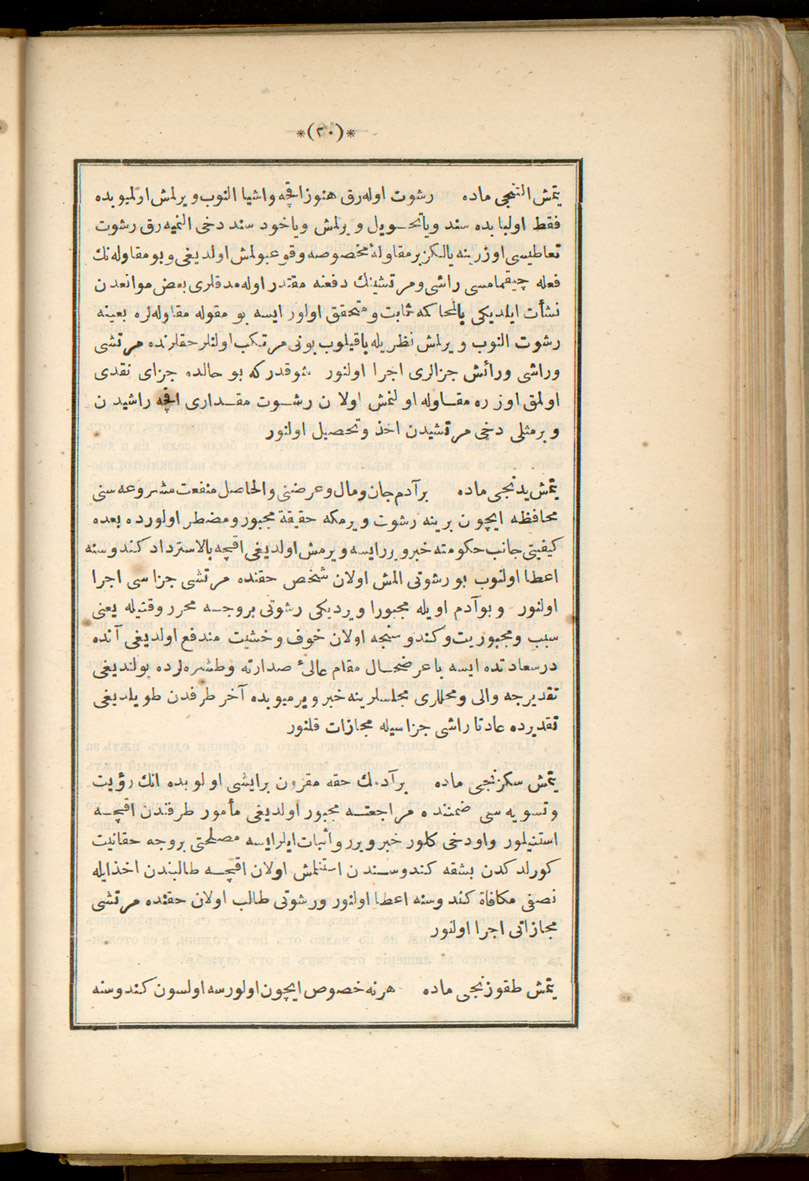 *(٢٠)*
يتمش التنجى ماده رشوت اوله رق هنوز اقچه واشيا النوب ويرلمش ارلميوبده
فقط اولبابده سند وياتحويل ويرلمش وياخود سند دخى النميه رق رشوت
تعاطيسى اوزرينه يالكز برمقاولهٔ مخصوصه وقوعبولمش اولديغى وبو مقاوله نك
فعله چيقمامسى راشى ومرتشينك دفعنه مقتدر اوله مدقلرى بعض موانعدن
نشأت ايلديكى بالمحاكمه ثابت ومتحقق اولور ايسه بو مقوله مقاوله لره بعينه
رشوت النوب ويرلمش نظريله باقيلوب بونى مرتكب اولنلر حقلرنده مرتشى
وراشى ورائش جزالرى اجرا اولنور شوقدركه بو حالده جزاى نقدى
اولمق اوزره مقاوله اولنمش اولان رشوت مقدارى اقچه راشيدن
وبرمثلى دخى مرتشيدن اخذ وتحصيل اولنور
يتمش يدنجى ماده برآدم جان ومال وعرضنى والحاصل منفعت مشروعه سنى
محافظه ايچون برينه رشوت ويرمكه حقيقة مجبور ومضطر اولورده بعده
كيفيتى جانب حكومته خبرويررايسه ويرمش اولديغى اقچه بالاسترداد كندوسنه
اعطا اولنوب بو رشوتى المش اولان شخص حقنده مرتشى جزاسى اجرا
اولنور وبوآدم اويله مجبورا ويرديكى رشوتى بروجه محرر وقتيله يعنى
سبب ومجبوريت وكندوسنجه اولان خوف وخشيت مندفع اولديغى آنده
درسعادتده ايسه باعرضحال مقام عالىٔ صدارته وطشره لرده بولنديغى
تقديرجه والى ومحللرى مجلسلرينه خبر ويرميوبده آخر طرفدن طويلديغى
تقديرده عادتا راشى جزاسيله مجازات قلنور
يتمش سكزنجى ماده برآدمك حقه مقرون برايشى اولوبده انك رؤيت
وتسويه سى ضمننده مراجعته مجبور اولديغى مأمور طرفندن اقچه
استنيلور واودخى كلور خبرويرر واثبات ايلرايسه مصلحتى بروجه حقانيت
كورلدكدن بشقه كندوسندن استنلمش اولان اقچه طالبندن اخذايله
نصفى مكافاة كندوسنه اعطا اولنور ورشوتى طالب اولان حقنده مرتشى
مجازاتى اجرا اولنور
يتمش طقوزنجى ماده هرنه خصوص ايچون اولورسه اولسون كندوسنه